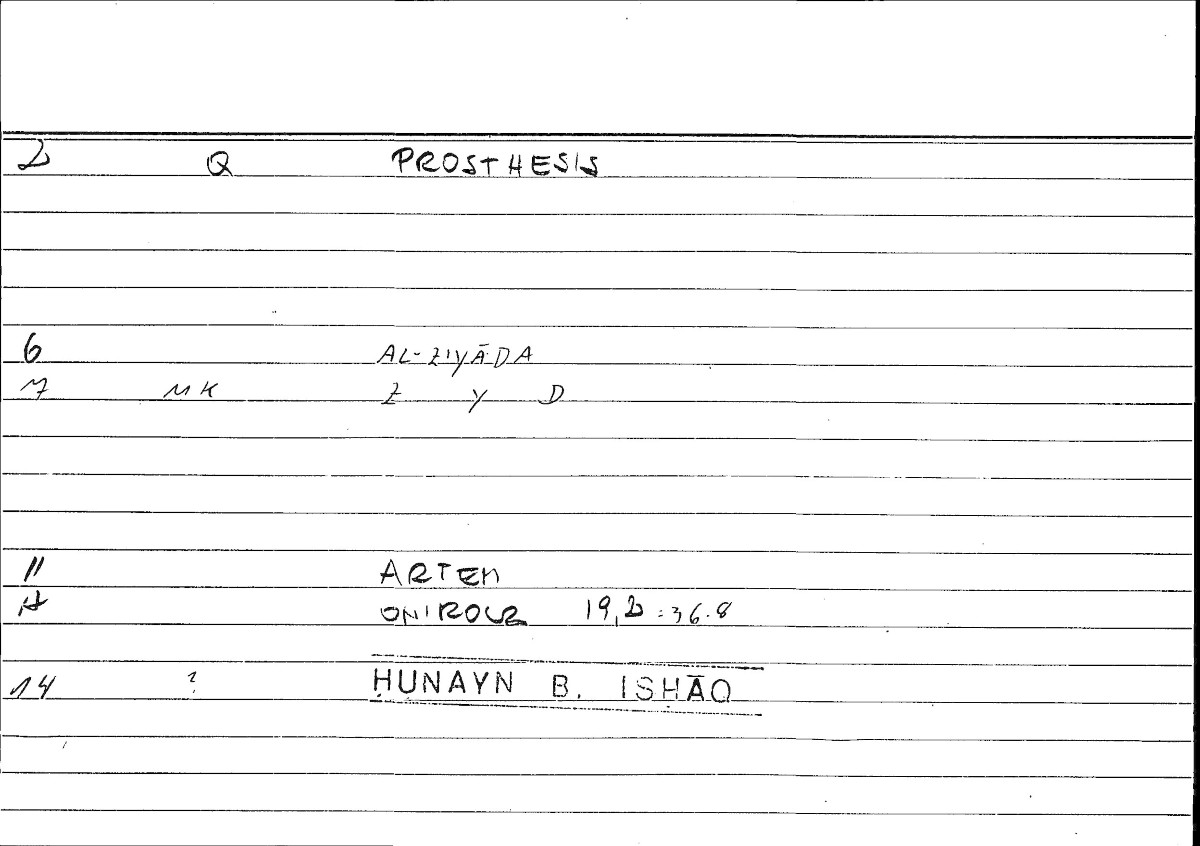 2 Q PROSTHESIS
6 AL-ZIYĀDA
7 MK Z Y D
11 ARTEM
12 ONIROCR 19,2 = 36.8
14 ? ḤUNAYN B. ISḤĀQ